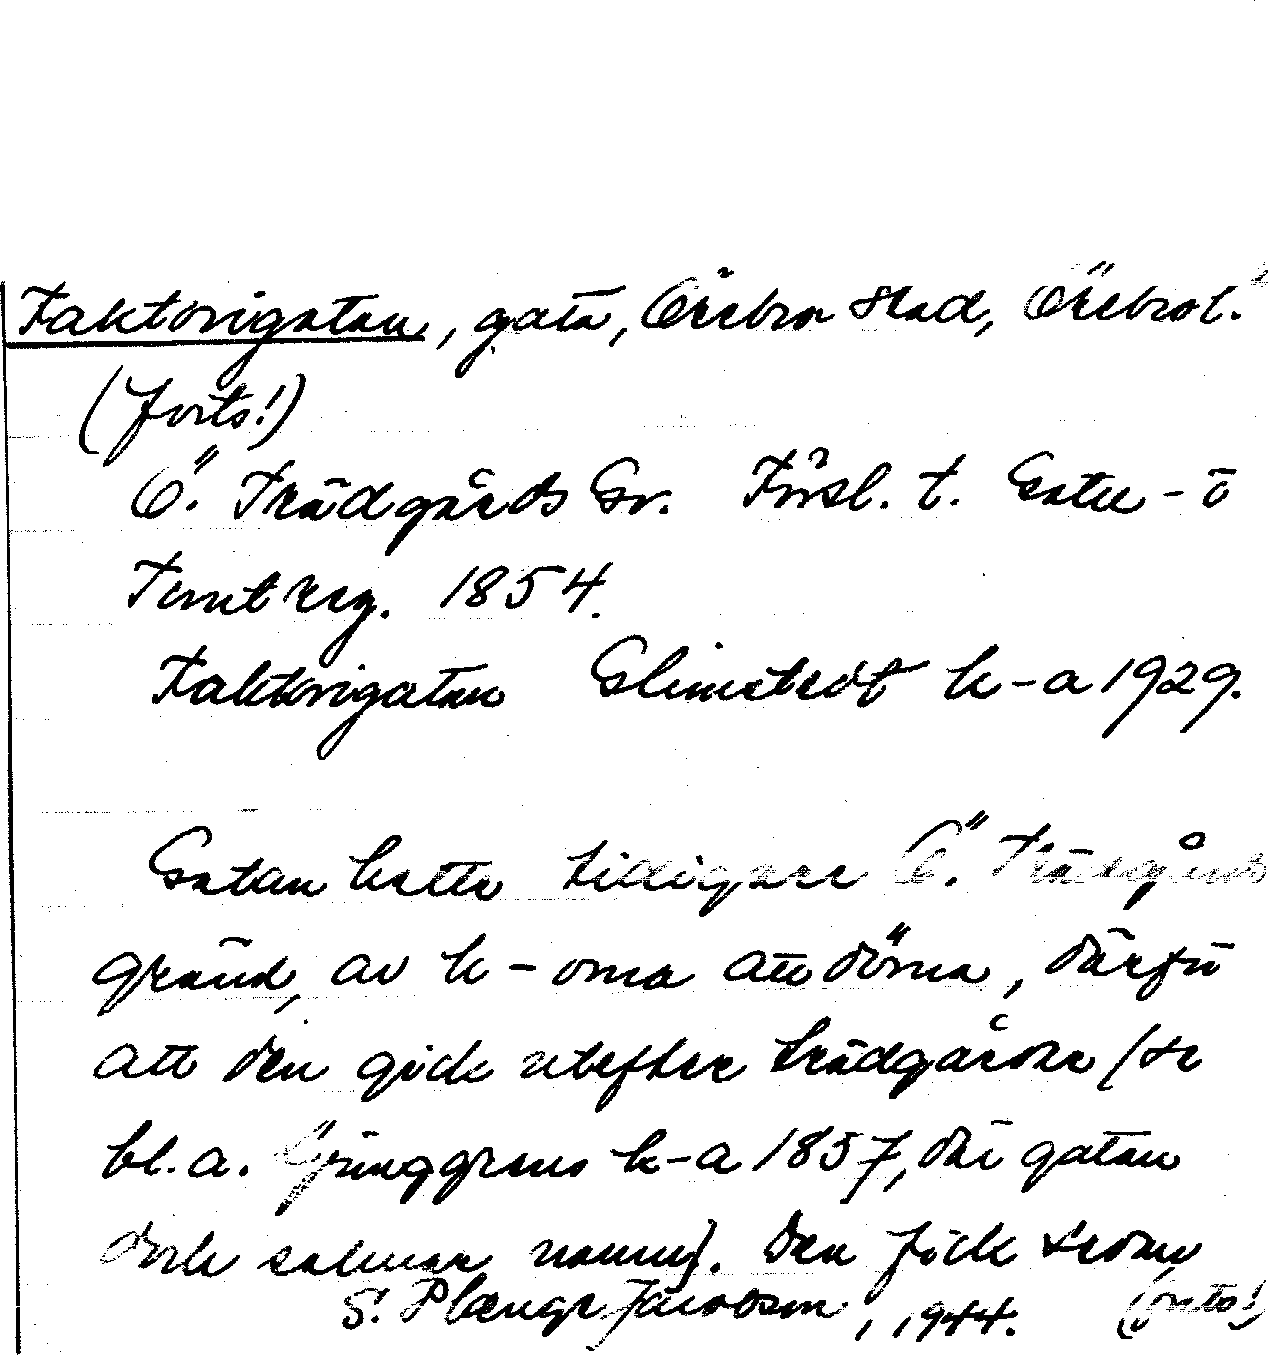 Faktorigatan, gata, Örebro stad, Örebro l.
(forts!)
Ö. Trädgårds Gr. Försl. t. Gatu- o
Tomtreg. 1854.
Faktorigatan Glimstedt k-a 1929.
Gatan hette tidigare Ö. Trädgårds
gränd, av k-orna att döma, därför
att den gick utefter trädgårdar (se
bl.a. Ljunggrens k-a 1857, där gatan
dock saknar namn). Den fick senare
S. Plænge Jacobson, 1944. (forts!)